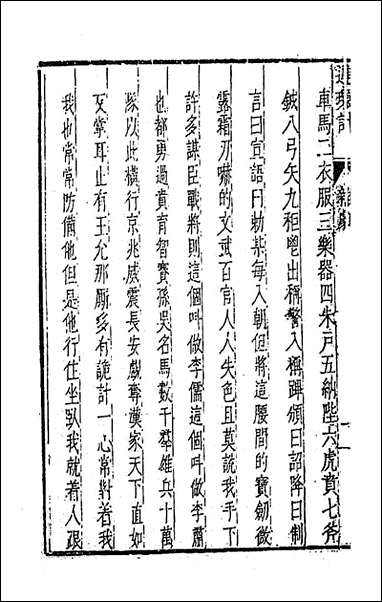 連環計
車馬二衣服三樂器四朱戸五納陛六虎賁七斧
鉞八弓矢九秬鬯出稱警入稱蹕頒曰詔降曰制
言曰宣語曰勑某每入朝但將這腰間的寳劍微
露霜刃嚇的文武百官人人失色且莫説我手下
許多謀臣戰將則這個呌做李儒這個呌做李肅
也都勇過賁育智賽孫吳名馬數千羣雄兵十萬
隊以此横行京兆威震長安覷奪漢家天下直如
反掌耳止有王允那厮多有詭計一心常對着我
我也常常防備他但是他行住坐臥我就着人跟